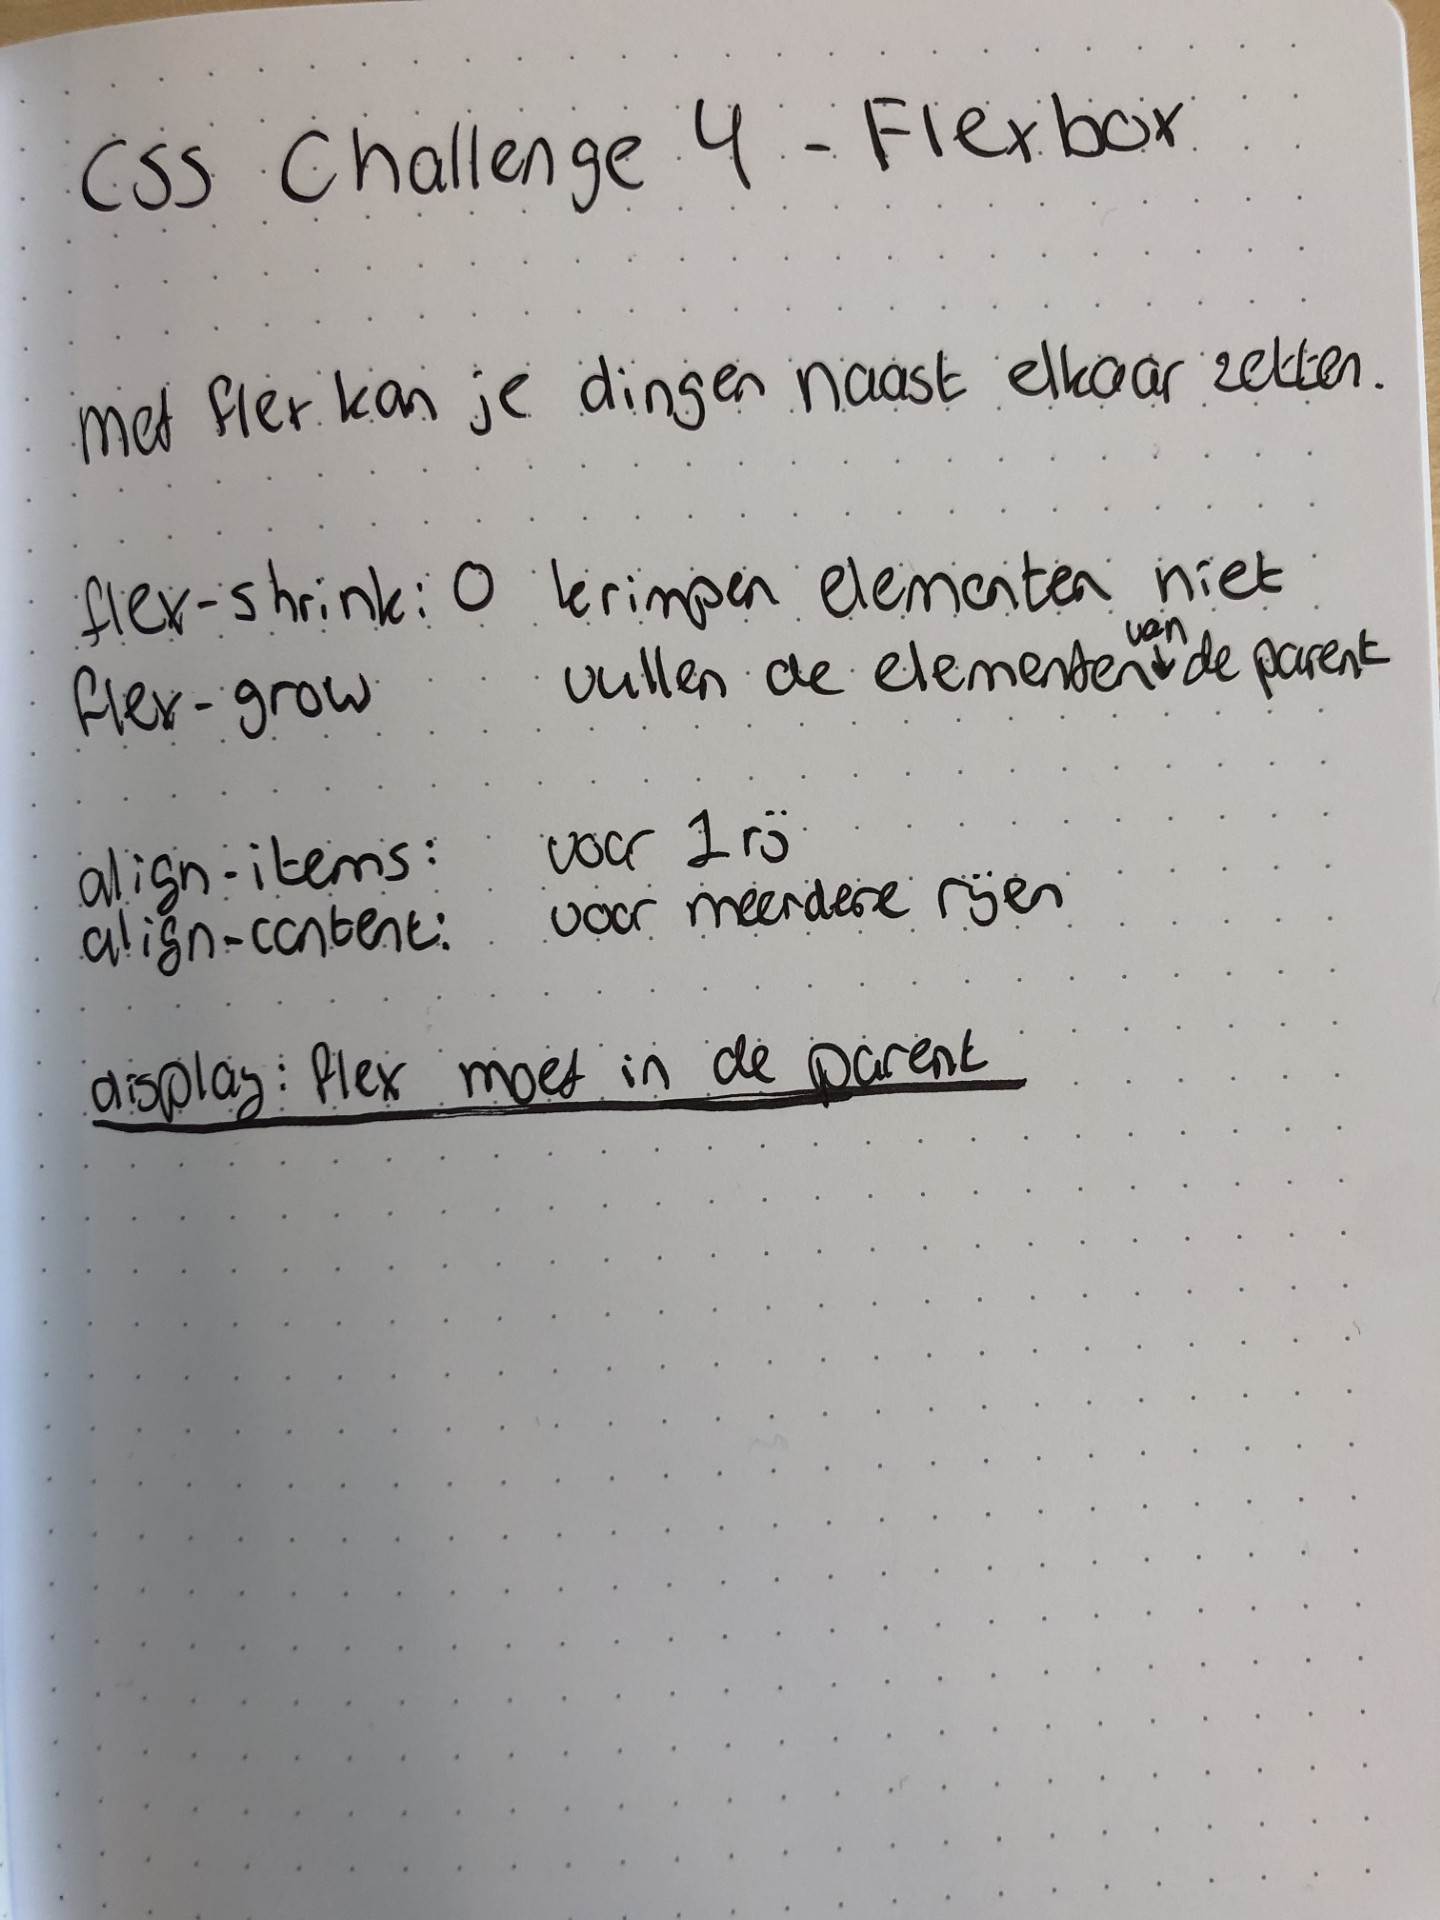 CSS Challenge 4 - Flexbox
met flex kan je dingen naast elkaar zetten.
flex-shrink: 0 krimpen elementen niet
flex-grow vullen de elementen van de parent
align-items: voor 1 rij
align-content: voor meerdere rijen
display: flex moet in de parent